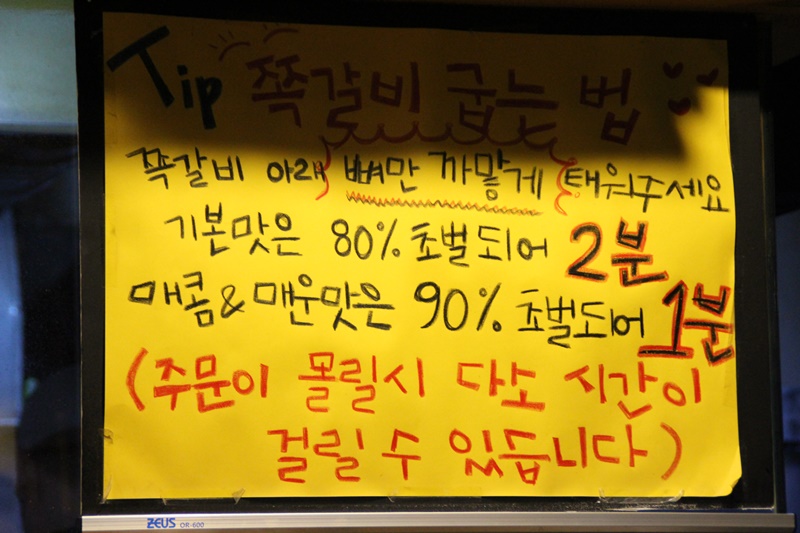 Tip 쪽갈비 굽는 법
쪽갈비 아래 뼈만 까맣게 태워주세요
기본맛은 80% 초벌되어 2분
매콤&매운맛은 90% 초벌되어 1분
(주문이 몰릴시 다소 시간이
걸릴 수 있습니다)
ZEUS OR-600